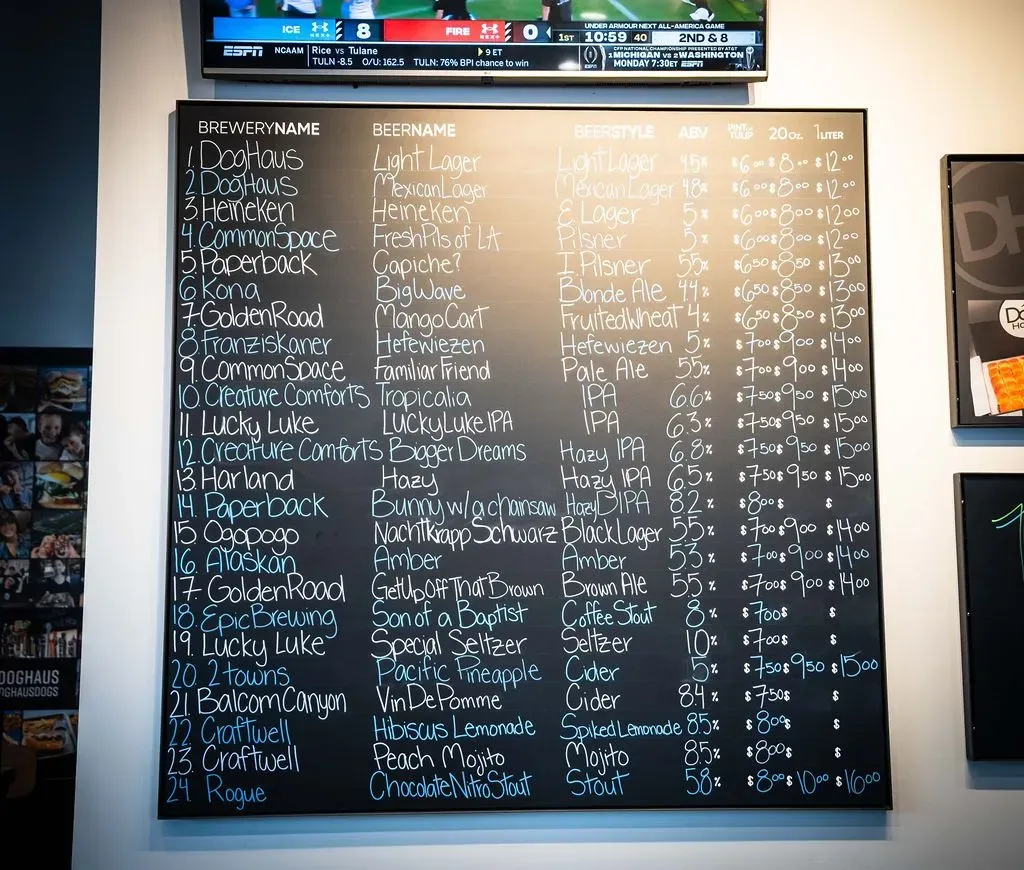 ICE 8 FIRE 0 1ST 10:59 40 2ND & 8
UNDER ARMOUR NEXT ALL-AMERICA GAME
ESPN NCAAM Rice vs Tulane 9 ET
TULN -8.5 O/U: 162.5 TULN: 76% BPI chance to win
CFP NATIONAL CHAMPIONSHIP PRESENTED BY AT&T
1 MICHIGAN vs 2 WASHINGTON
MONDAY 7:30 ET ESPN
BREWERYNAME BEERNAME BEERSTYLE ABV PINT or TULIP 20 oz. 1 LITER
1. DogHaus Light Lager Light Lager 4.5% $6.00 $8.00 $12.00
2. DogHaus Mexican Lager Mexican Lager 4.8% $6.00 $8.00 $12.00
3 Heineken Heineken E. Lager 5% $6.00 $8.00 $12.00
4. CommonSpace Fresh Pils of LA Pilsner 5% $6.00 $8.00 $12.00
5. Paperback Capiche? I. Pilsner 5.5% $6.50 $8.50 $13.00
6 Kona Big Wave Blonde Ale 4.4% $6.50 $8.50 $13.00
7. GoldenRoad Mango Cart Fruited Wheat 4% $6.50 $8.50 $13.00
8. Franziskaner Hefewiezen Hefewiezen 5% $7.00 $9.00 $14.00
9. CommonSpace Familiar Friend Pale Ale 5.5% $7.00 $9.00 $14.00
10. Creature Comforts Tropicalia IPA 6.6% $7.50 $9.50 $15.00
11. Lucky Luke Lucky Luke IPA IPA 6.3% $7.50 $9.50 $15.00
12. Creature Comforts Bigger Dreams Hazy IPA 6.8% $7.50 $9.50 $15.00
13 Harland Hazy Hazy IPA 6.5% $7.50 $9.50 $15.00
14 Paperback Bunny w/a chainsaw Hazy DIPA 8.2% $8.00 $ $
15 Ogopogo Nachtkrapp Schwarz Black Lager 5.5% $7.00 $9.00 $14.00
16. Alaskan Amber Amber 5.3% $7.00 $9.00 $14.00
17. GoldenRoad Get Up off That Brown Brown Ale 5.5% $7.00 $9.00 $14.00
18. Epic Brewing Son of a Baptist Coffee Stout 8% $7.00 $ $
19. Lucky Luke Special Seltzer Seltzer 10% $7.00 $ $
20. 2 towns Pacific Pineapple Cider 5% $7.50 $9.50 $15.00
21 Balcom Canyon Vin De Pomme Cider 8.4% $7.50 $ $
22 Craftwell Hibiscus Lemonade Spiked Lemonade 8.5% $8.00 $ $
23 Craftwell Peach Mojito Mojito 8.5% $8.00 $ $
24. Rogue Chocolate Nitro Stout Stout 5.8% $8.00 $10.00 $16.00
DOGHAUS
DOGHAUSDOGS
DH